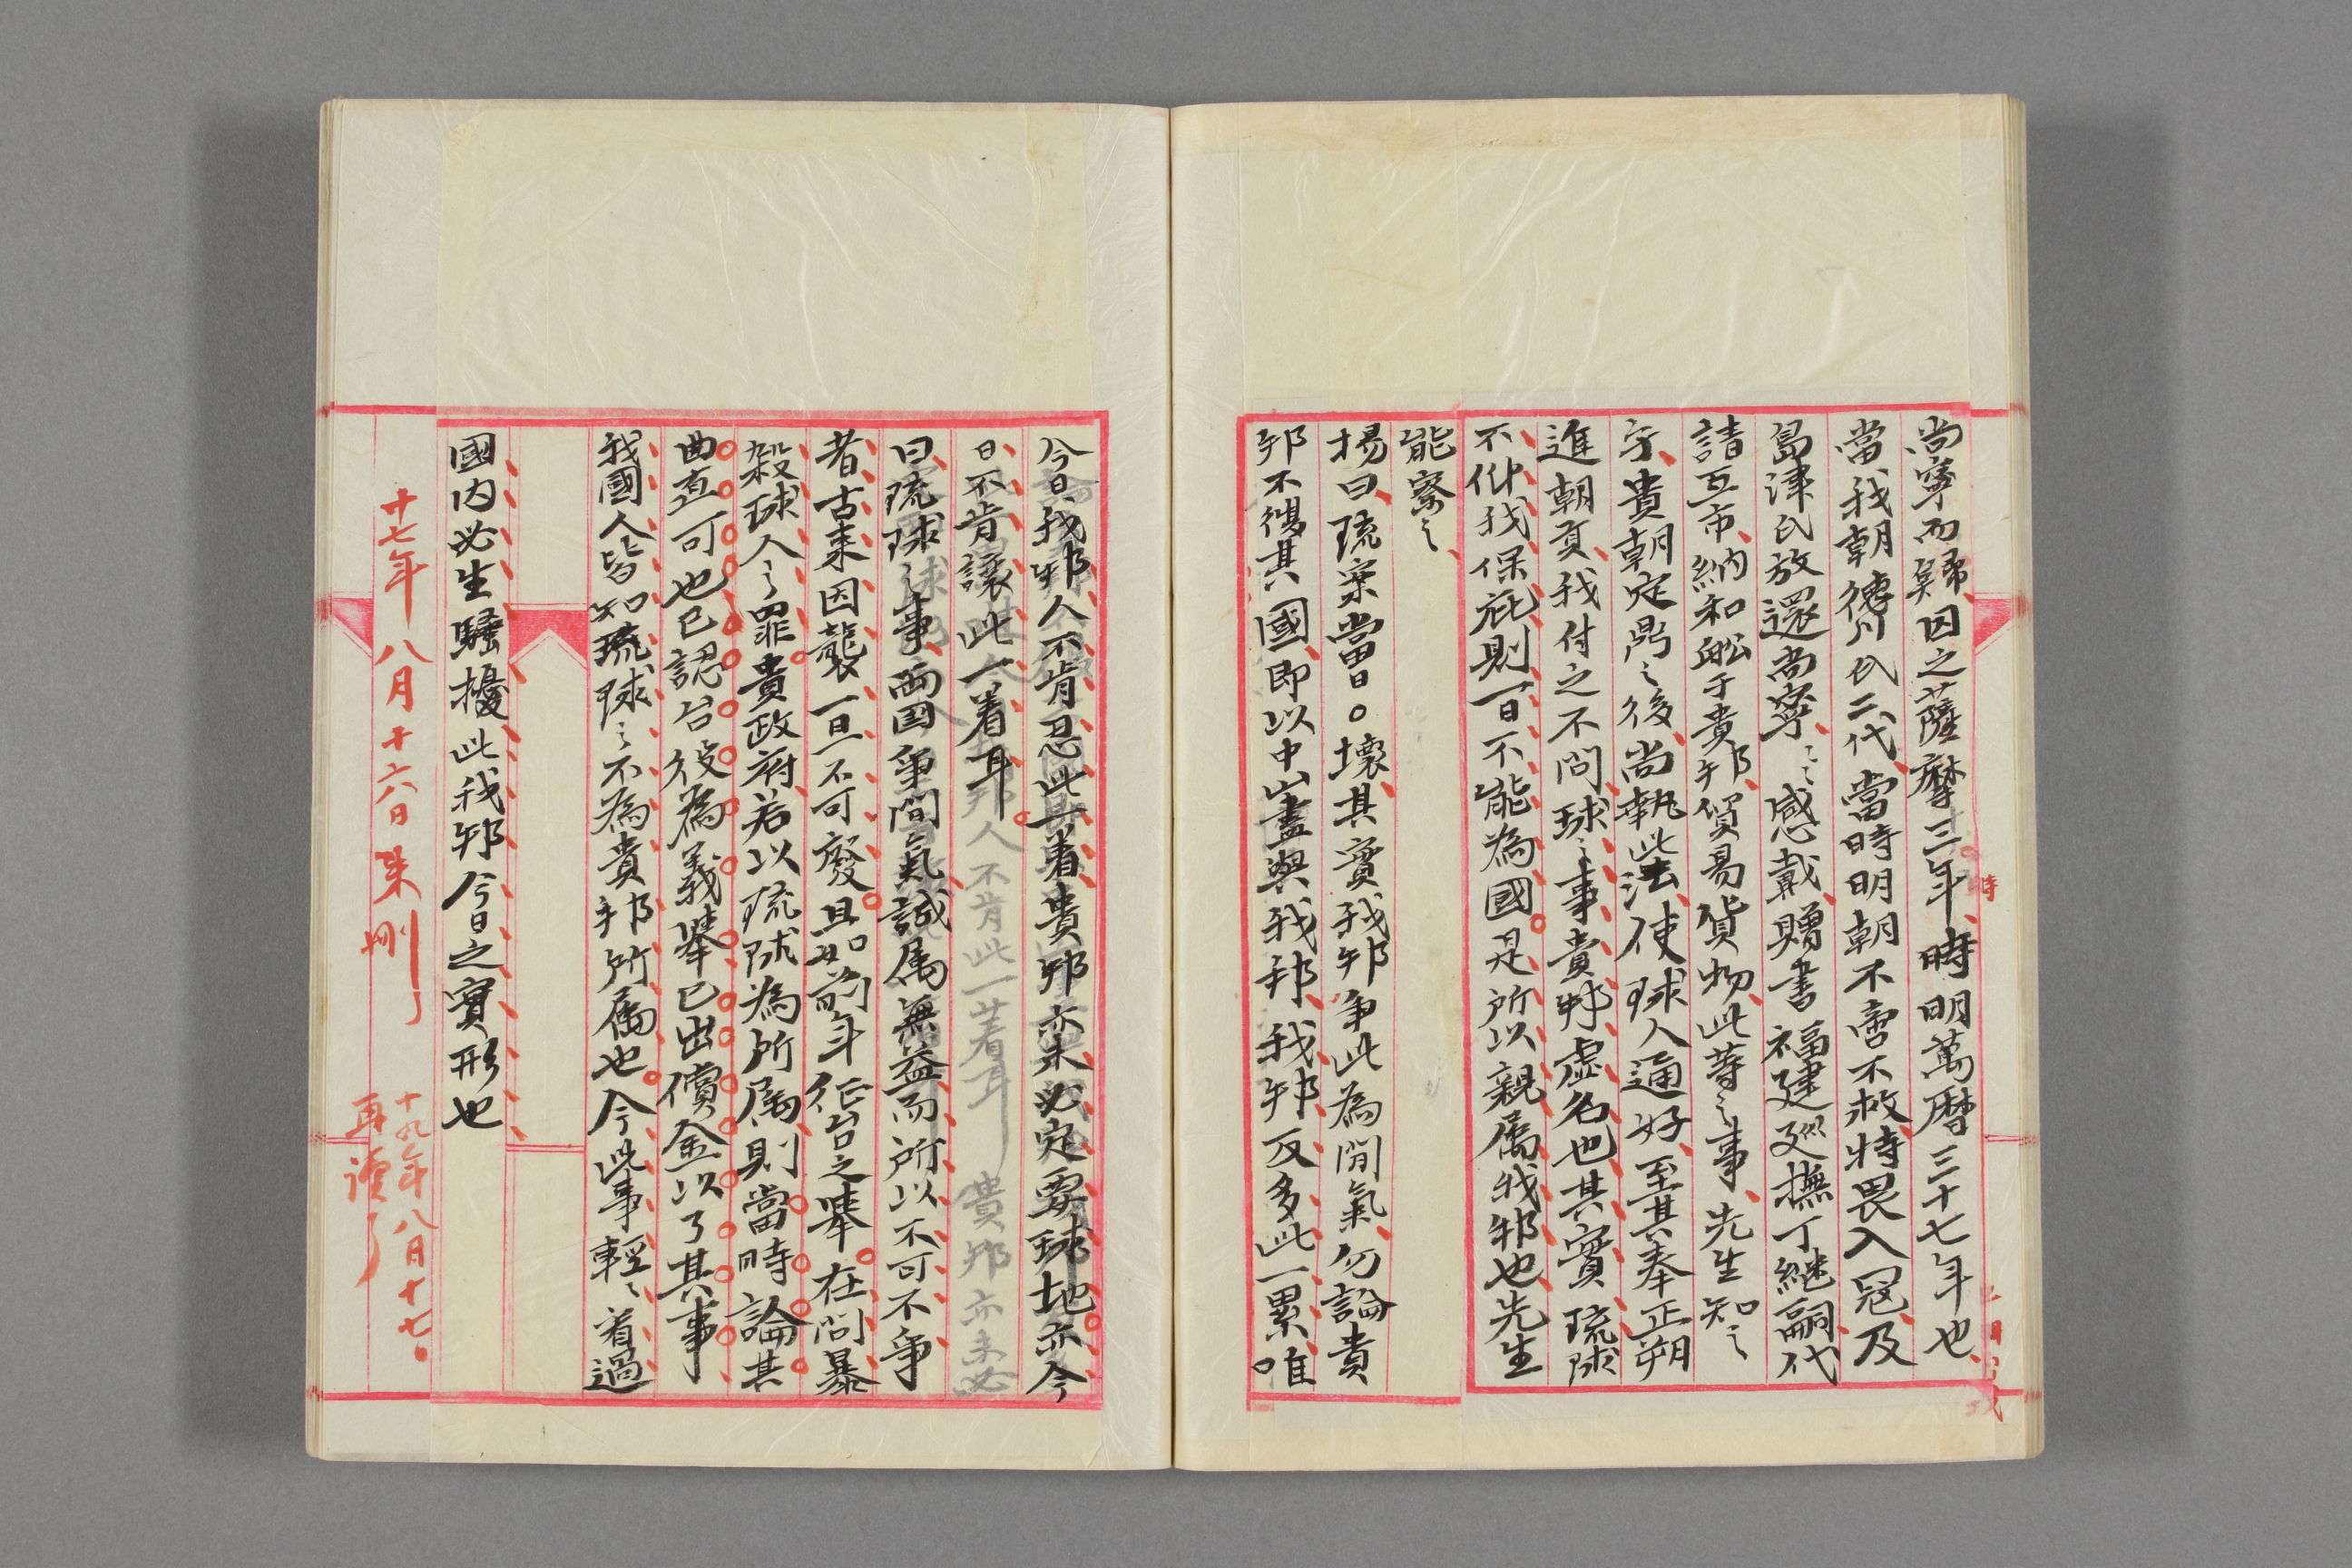 尚寧而歸、因之薩摩三年、時明萬曆三十七年也、
當我朝德川氏二代、當時明朝不啻不救、特畏入冦、及
島津氏放還尚寧、〻感戴、贈書福建巡撫丁継嗣、代
請互市、納和船于貴邦、貿易貨物、此等之事、先生知之
字、貴朝定鼎之後、尚執此法、使球人通好、至其奉正朔
進朝貢、我付之不問、球之事貴邦、虛名也、其實琉球
不仰我保庇、則一日不能為國。是所以親属我邦也、先生
能察之、
楊曰、琉案當曰。壞其實我邦爭此為閒氣、勿論貴
邦不得其國、即以中山盡與我邦、我邦反多此一累、唯
今日我邦人不肯忍此一着、貴邦亦未必定要球地。亦今
日不肯讓此一着耳。
邦人不肯此一着耳 貴邦亦未必
曰、琉球之事、両国爭閒氣、誠属無益、而所以不可不爭
者、古来因襲、一旦不可廢。且如前年征台之舉。在問暴
殺球人之罪。貴政府若以琉球為所属、則當時論其
曲直可也、已認台役為義舉、已出償金以了其事
我國人皆知琉球之不為貴邦所属也。今此事輕〻着過
國内必生騷擾、此我邦今日之實形也
十七年八月十六日朱刪了
十九年八月十七。
再讀了